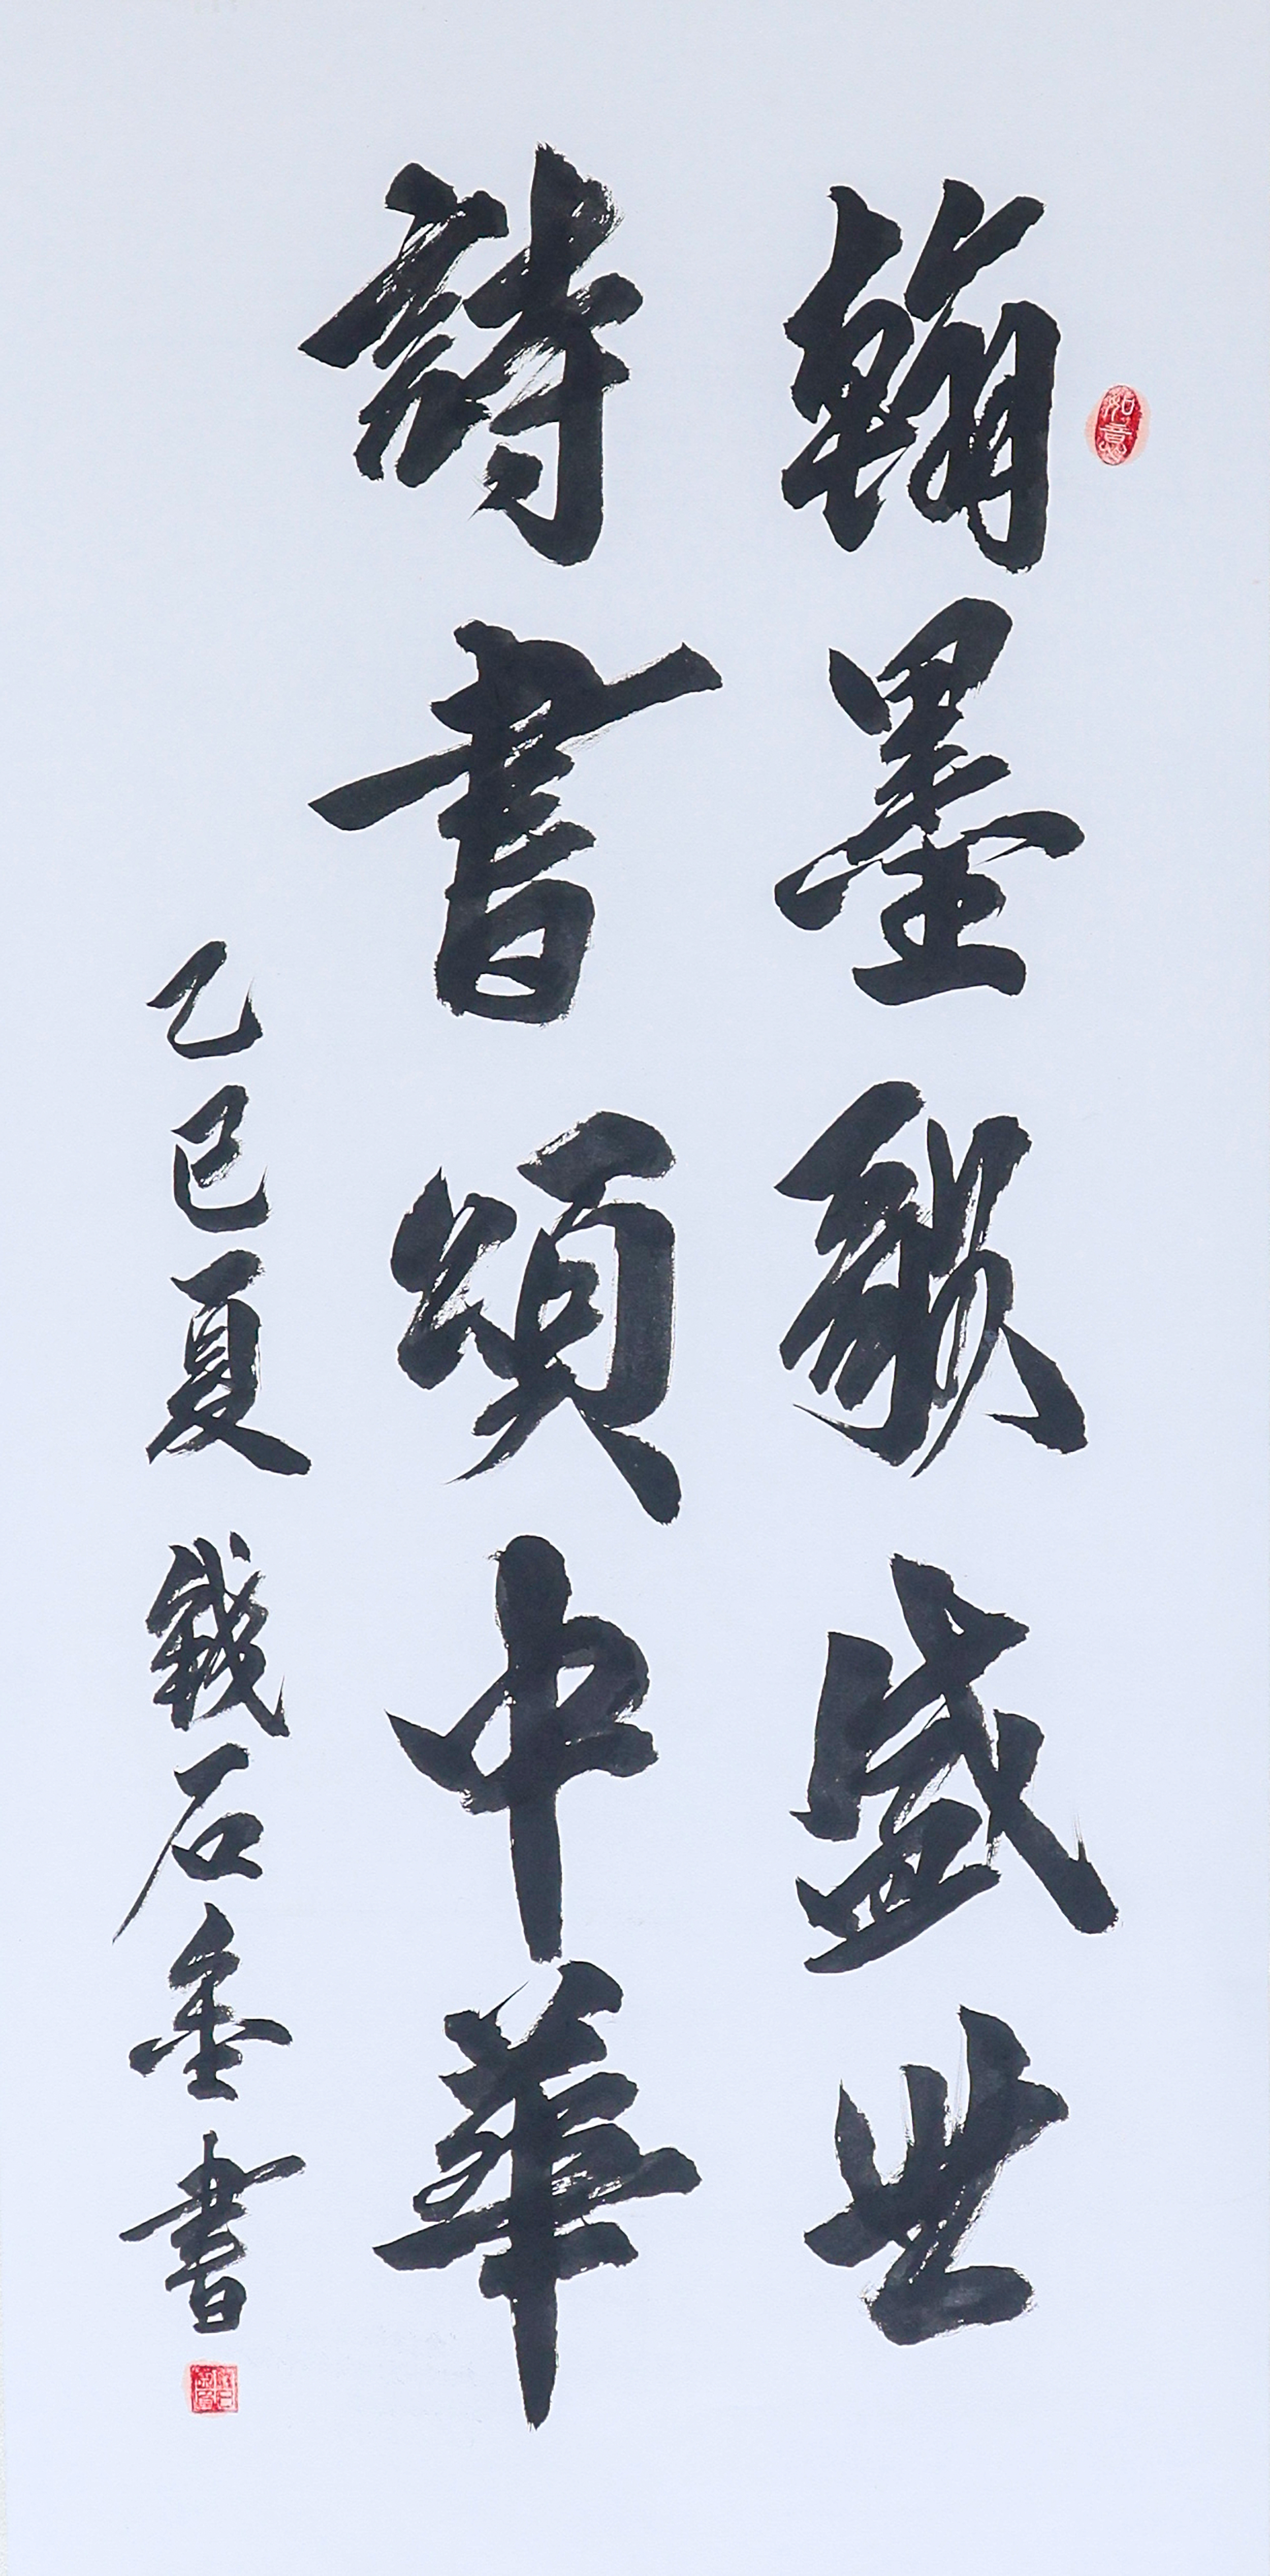 翰墨歌盛世
詩書頌中華
乙巳夏 錢石金書
如意